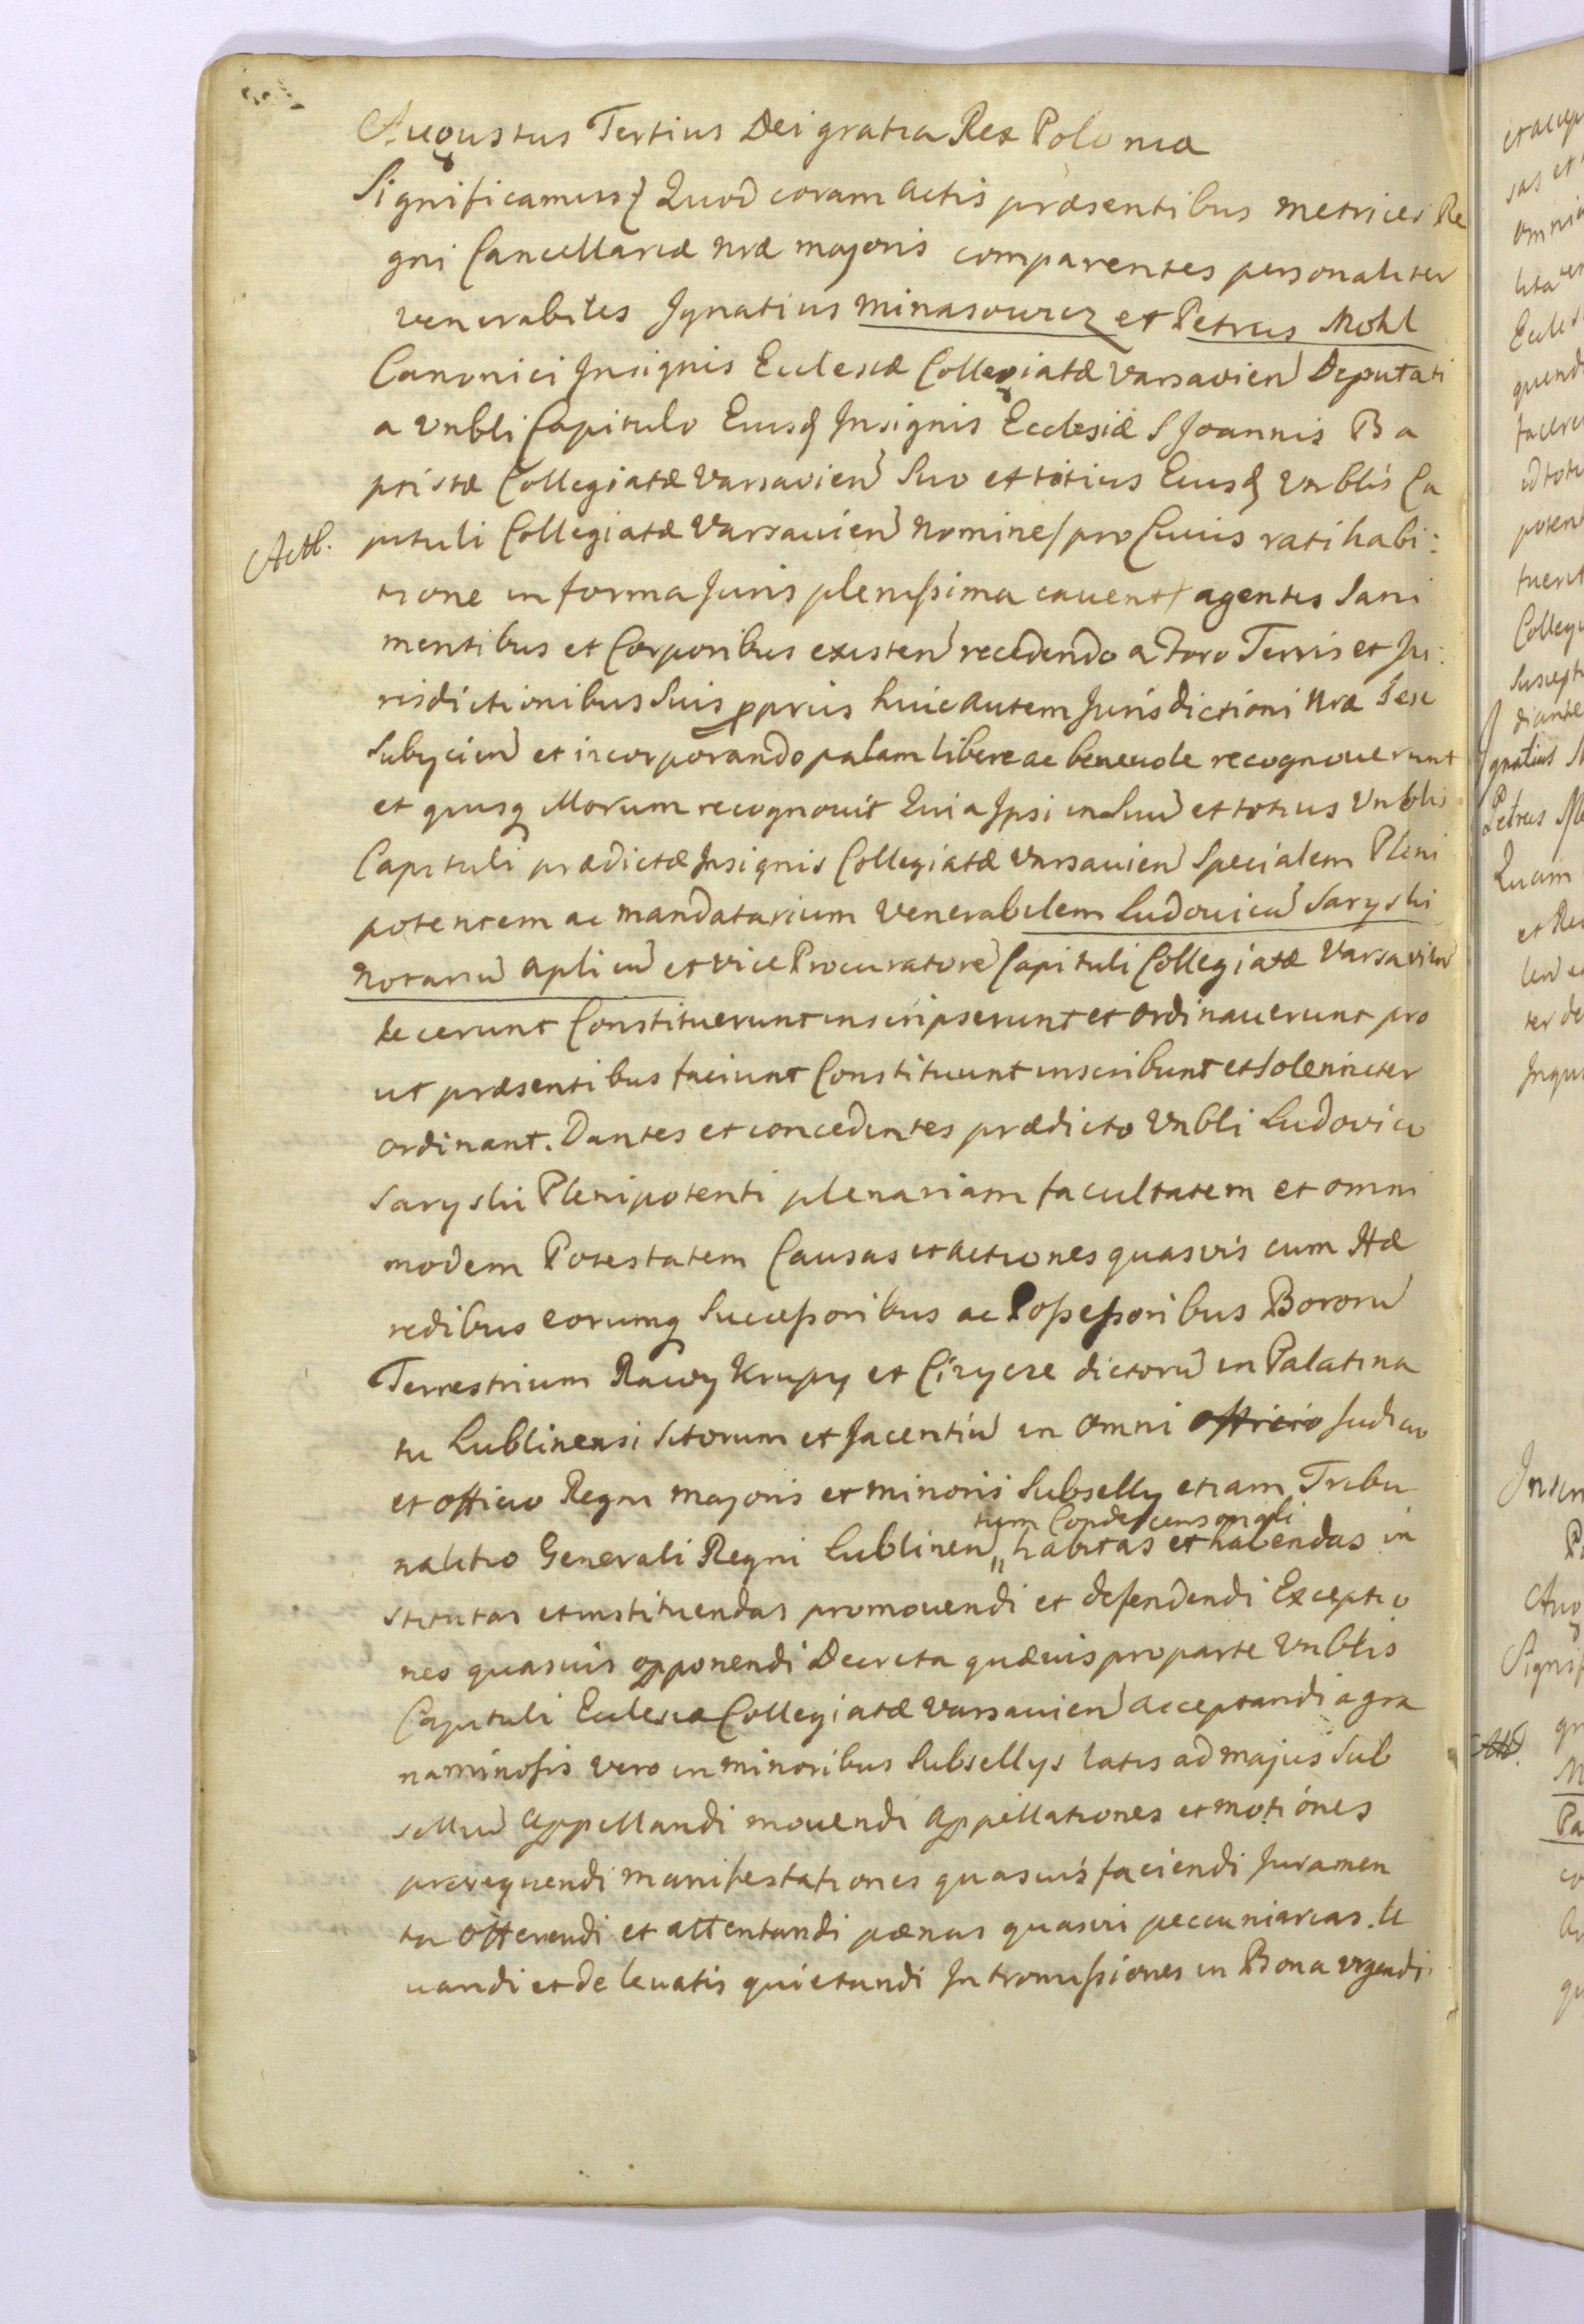 Augustus Tertius Dei gratia Rex Poloniæ
Significamus Quod coram actis præsentibus metrices Re
gni Cancellariæ nræ majoris comparentes personaliter
venerabiles Ignatius Minasowicz et Petrus Mohl
Canonici Insignis Ecclesiæ Collegiatæ Varsavien Deputati
a Vnbli Capitulo Eiusq Insignis Ecclesiæ S Joannis Ba
ptistæ Collegiatæ Varsavien Suo et totius Eiusq Vnblis Ca
Actl.
pituli Collegiatæ Varsauien Nomine / pro Cuius ratihabi:
tione in forma Juris plenissima cauent / agentes Sani
mentibus et Corporibus existen recedendo a Foro Terris et Ju:
risdictionibus Suis ppriis huic autem Jurisdictioni Nræ Sese
Subycien et incorporando palam libere ac beneuole recognouerunt
et quisq Illorum recognouit Quia Ipsi in Suu et totius Vnblis
Capituli prædictæ Insignis Collegiatæ Varsauien Specialem Pleni
potentem ac mandatarium Venerabilem Ludouicu Saryski
Notariu Aplicu et vice Procuratore Capituli Collegiatæ Varsavien
fecerunt Constituerunt inscripserunt et ordinauerunt pro
ut præsentibus faciunt Constituunt inscribunt et Soleniter
ordinant. Dantes et concedentes prædicto Vnbli Ludovico
Saryski Plenipotenti plenariam facultatem et omni
modem Potestatem Causas et actiones quasvis cum Hæ
redibus eorumq Successoribus ac Possessoribus Bonoru
Terrestrium Rawy Krupy et dictoru in Palatina
tu Lublinensi Sitorum et Jacentiu in Omni officio Judicio
et officio Regni majoris et minoris Subselly etiam Tribu
tum Condescensionali
nalitio Generali Regni Lublinen " habitas et habendas in
stitutas et instituendas promouendi et defendendi Exceptio
nes quasuis opponendi Decreta quæuis pro parte Vnblis
Capituli Ecclesiæ Collegiatæ Varsauien acceptandi a gra
naminosis vero in minoribus Subsellys latis ad majus Sub
selliu Appellandi mouendi Appellationes et motiones
prosequendi manifestationes quasuis faciendi Juramen
ta offerendi et attentandi pænas quasvi peccuniarias le
uandi et de leuatis quietandi Intromissiones in Bona urgendi